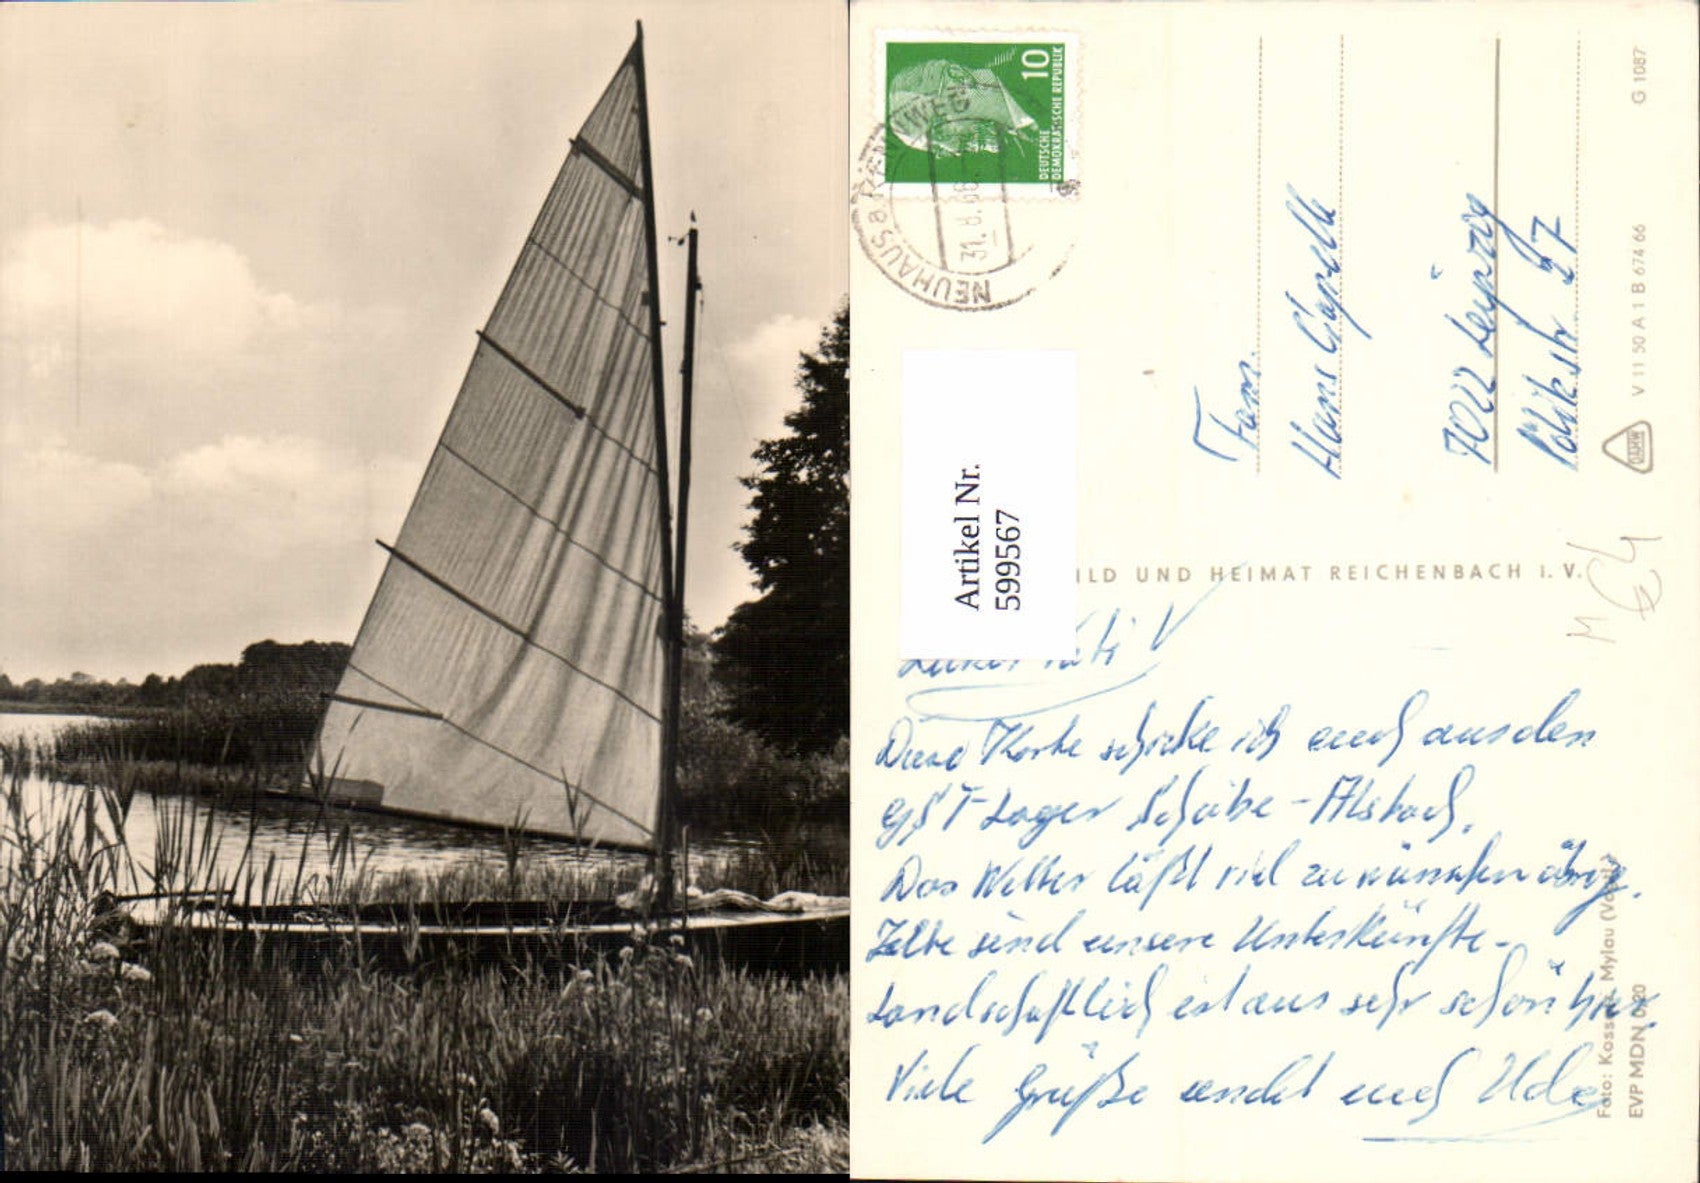 10
DEUTSCHE
DEMOKRATISCHE REPUBLIK
NEUHAUS a.RENNWEG
31.8.66
Fam.
Hans Capelle
7022 Leipzig
27
G 1087
V 11 50 A 1 B 674 66
Artikel Nr.
599567
ILD UND HEIMAT REICHENBACH I. V.
M €4
Diese Karte schicke ich euch aus dem
GST-Lager Scheibe-Alsbach.
Das Wetter läßt viel zu wünschen übrig.
Zelte sind unsere Unterkünfte.
Landschaftlich ist aus sehr schön hier.
Viele Grüße sendet euch Udo
Foto: Mylau
EVP MDN 0,20